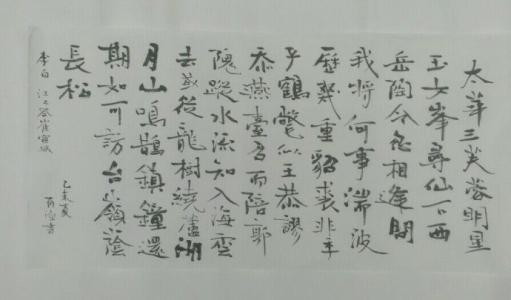 太華三芙蓉明星
玉女峯尋仙下西
岳陶令忽相逢問
我將何事湍波
歷幾重貂裘非季
子鶴氅似王恭謬
忝燕臺召而陪郭
隗蹤水流知入海雲
去或從龍樹繞蘆洲
月山鳴鵲鎮鐘還
期如可訪台嶺蔭
長松
李白 江上答崔宣城
乙未夏
書